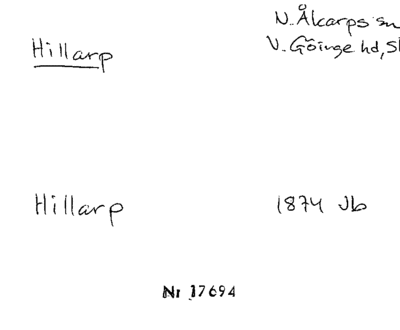 Hillarp
N. Åkarps sn
V. Göinge hd, Sk
Hillarp
1874 Jb
Nr 17694